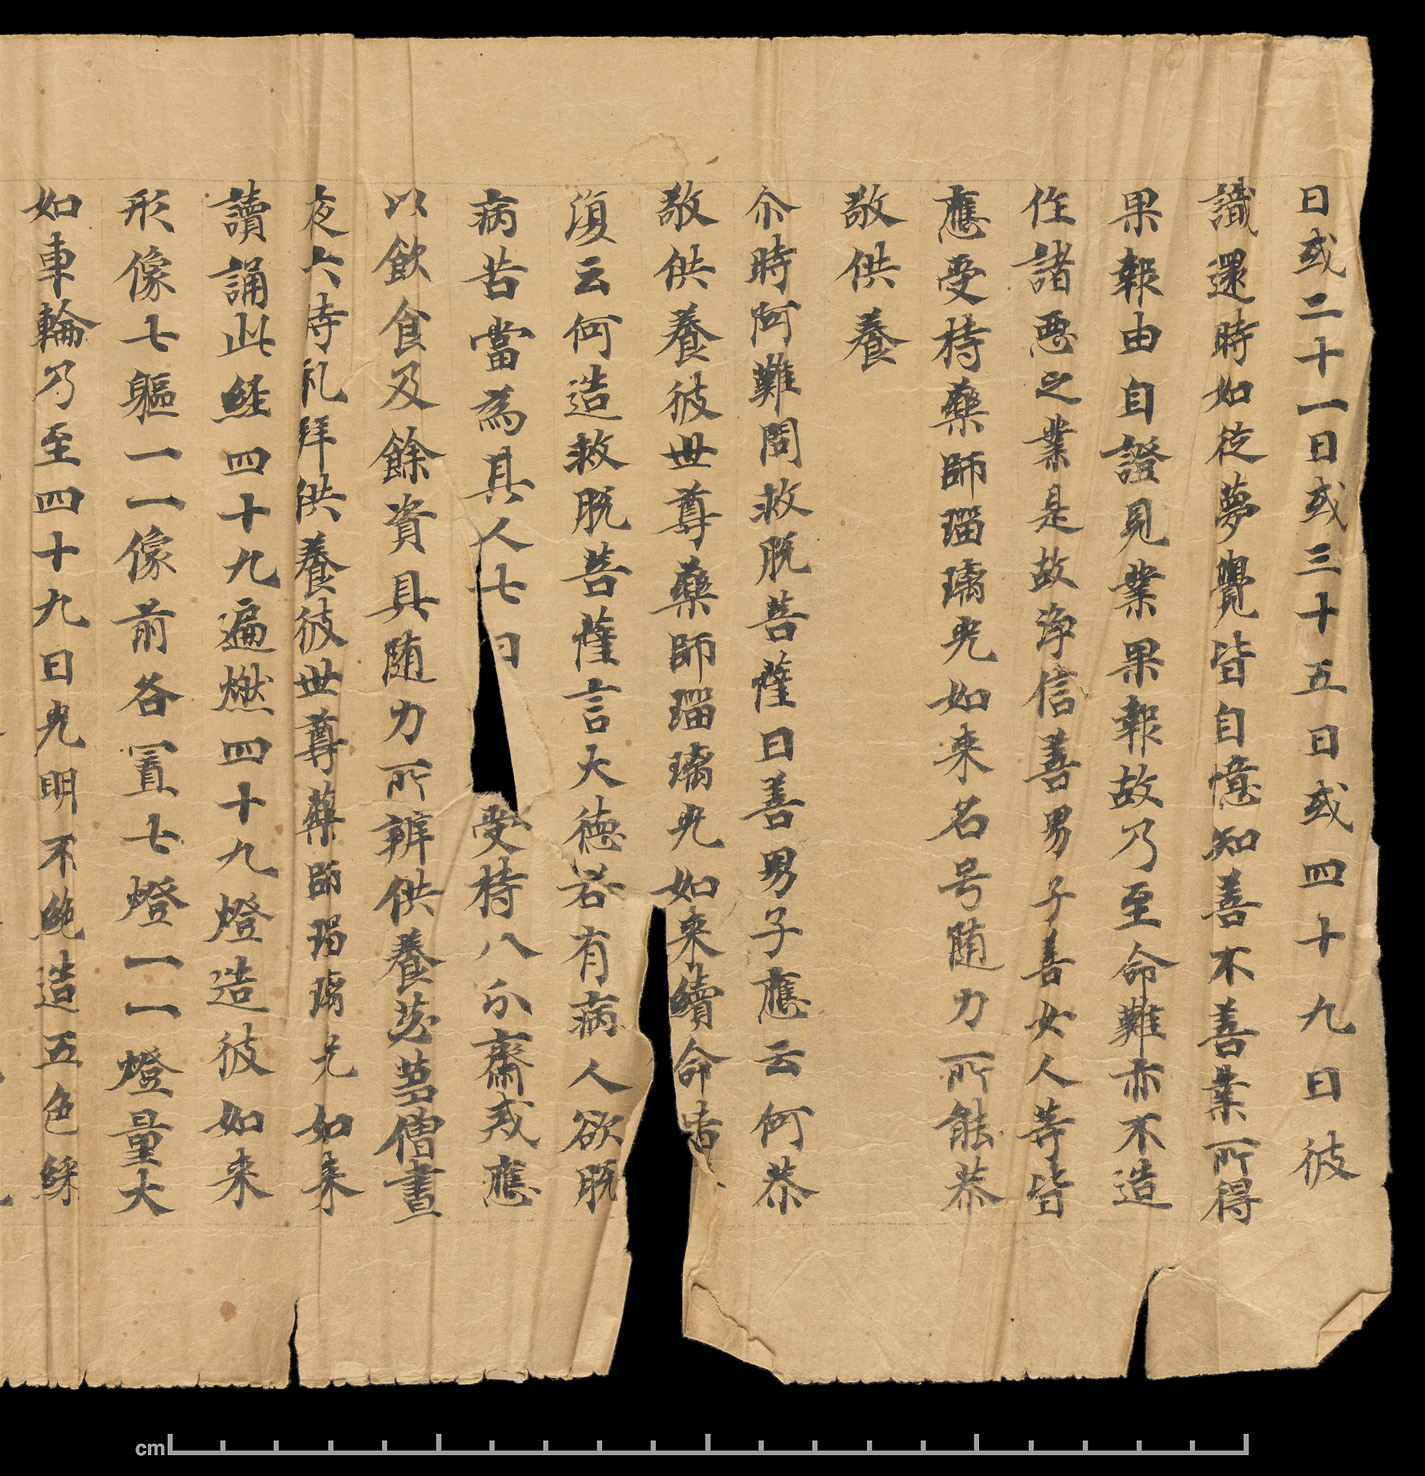 日或二十一日或三十五日或四十九日彼
識還時如従夢覺皆自憶知善不善業所得
果報由自證見業果報故乃至命難亦不造
作諸惡之業是故淨信善男子善女人等皆
應受持藥師瑠璃光如来名号随力所能恭
敬供養
尒時阿難問救脫菩薩曰善男子應云何恭
敬供養彼世尊藥師瑠璃光如来續命幡
復云何造救脫菩薩言大德若有病人欲脫
病苦當為其人七日受持八分齋戒應
以飲食及餘資具随力所辨供養苾蒭僧晝
夜六時礼拜供養彼世尊藥師瑠璃光如来
讀誦此経四十九遍燃四十九燈造彼如来
形像七軀一一像前各置七燈一一燈量大
如車輪乃至四十九日光明不絶造五色綵